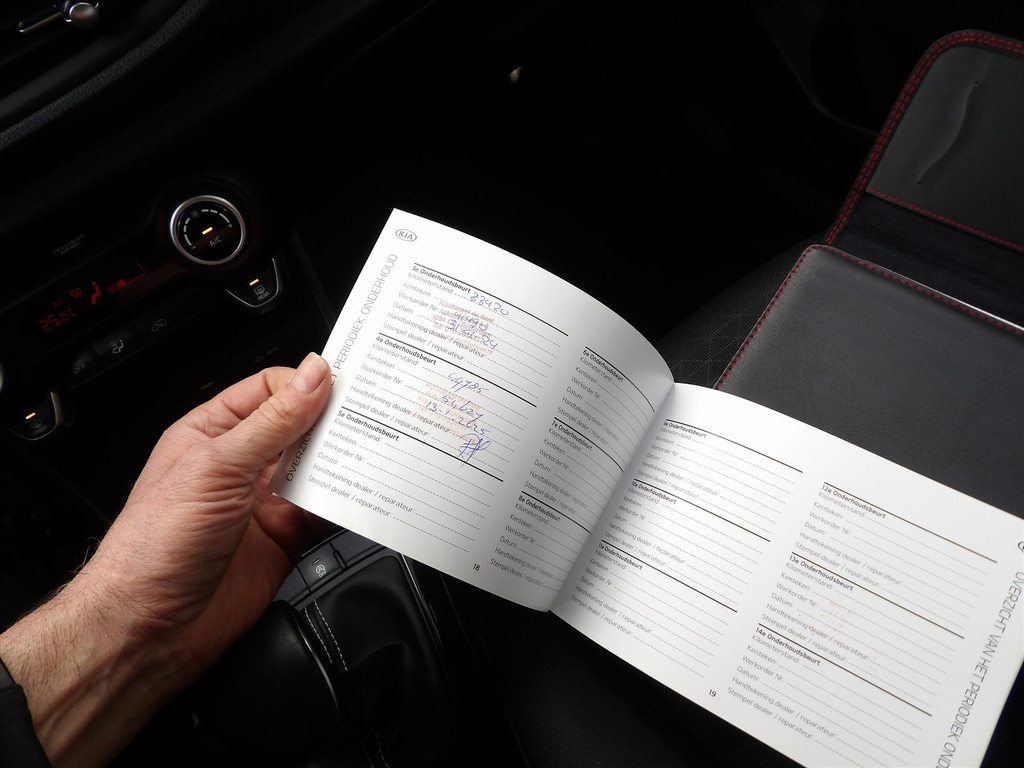 KIA
PERIODIEK ONDERHOUD
3e Onderhoudsbeurt
Kilometerstand: 23420
Kenteken:
Werkorder Nr:
Datum:
Handtekening dealer / reparateur:
Stempel dealer / reparateur:
4e Onderhoudsbeurt
Kilometerstand: 44785
Kenteken:
Werkorder Nr:
Datum: 13-1-2025
Handtekening dealer / reparateur:
Stempel dealer / reparateur:
5e Onderhoudsbeurt
Kilometerstand:
Kenteken:
Werkorder Nr:
Datum:
Handtekening dealer / reparateur:
Stempel dealer / reparateur:
6e Onderhoudsbeurt
Kilometerstand:
Kenteken:
Werkorder Nr:
Datum:
Handtekening dealer / reparateur:
Stempel dealer / reparateur:
7e Onderhoudsbeurt
Kilometerstand:
Kenteken:
Werkorder Nr:
Datum:
Handtekening dealer / reparateur:
Stempel dealer / reparateur:
8e Onderhoudsbeurt
Kilometerstand:
Kenteken:
Werkorder Nr:
Datum:
Handtekening dealer / reparateur:
Stempel dealer / reparateur:
18
Onderhoudsbeurt
Kilometerstand:
Kenteken:
Werkorder Nr:
Datum:
Handtekening dealer / reparateur:
Stempel dealer / reparateur:
Onderhoudsbeurt
Kilometerstand:
Kenteken:
Werkorder Nr:
Datum:
Handtekening dealer / reparateur:
Stempel dealer / reparateur:
Onderhoudsbeurt
Kilometerstand:
Kenteken:
Werkorder Nr:
Datum:
Handtekening dealer / reparateur:
Stempel dealer / reparateur:
12e Onderhoudsbeurt
Kilometerstand:
Kenteken:
Werkorder Nr:
Datum:
Handtekening dealer / reparateur:
Stempel dealer / reparateur:
13e Onderhoudsbeurt
Kilometerstand:
Kenteken:
Werkorder Nr:
Datum:
Handtekening dealer / reparateur:
Stempel dealer / reparateur:
14e Onderhoudsbeurt
Kilometerstand:
Kenteken:
Werkorder Nr:
Datum:
Handtekening dealer / reparateur:
Stempel dealer / reparateur:
19
OVERZICHT VAN HET PERIODIEK OND
A/C